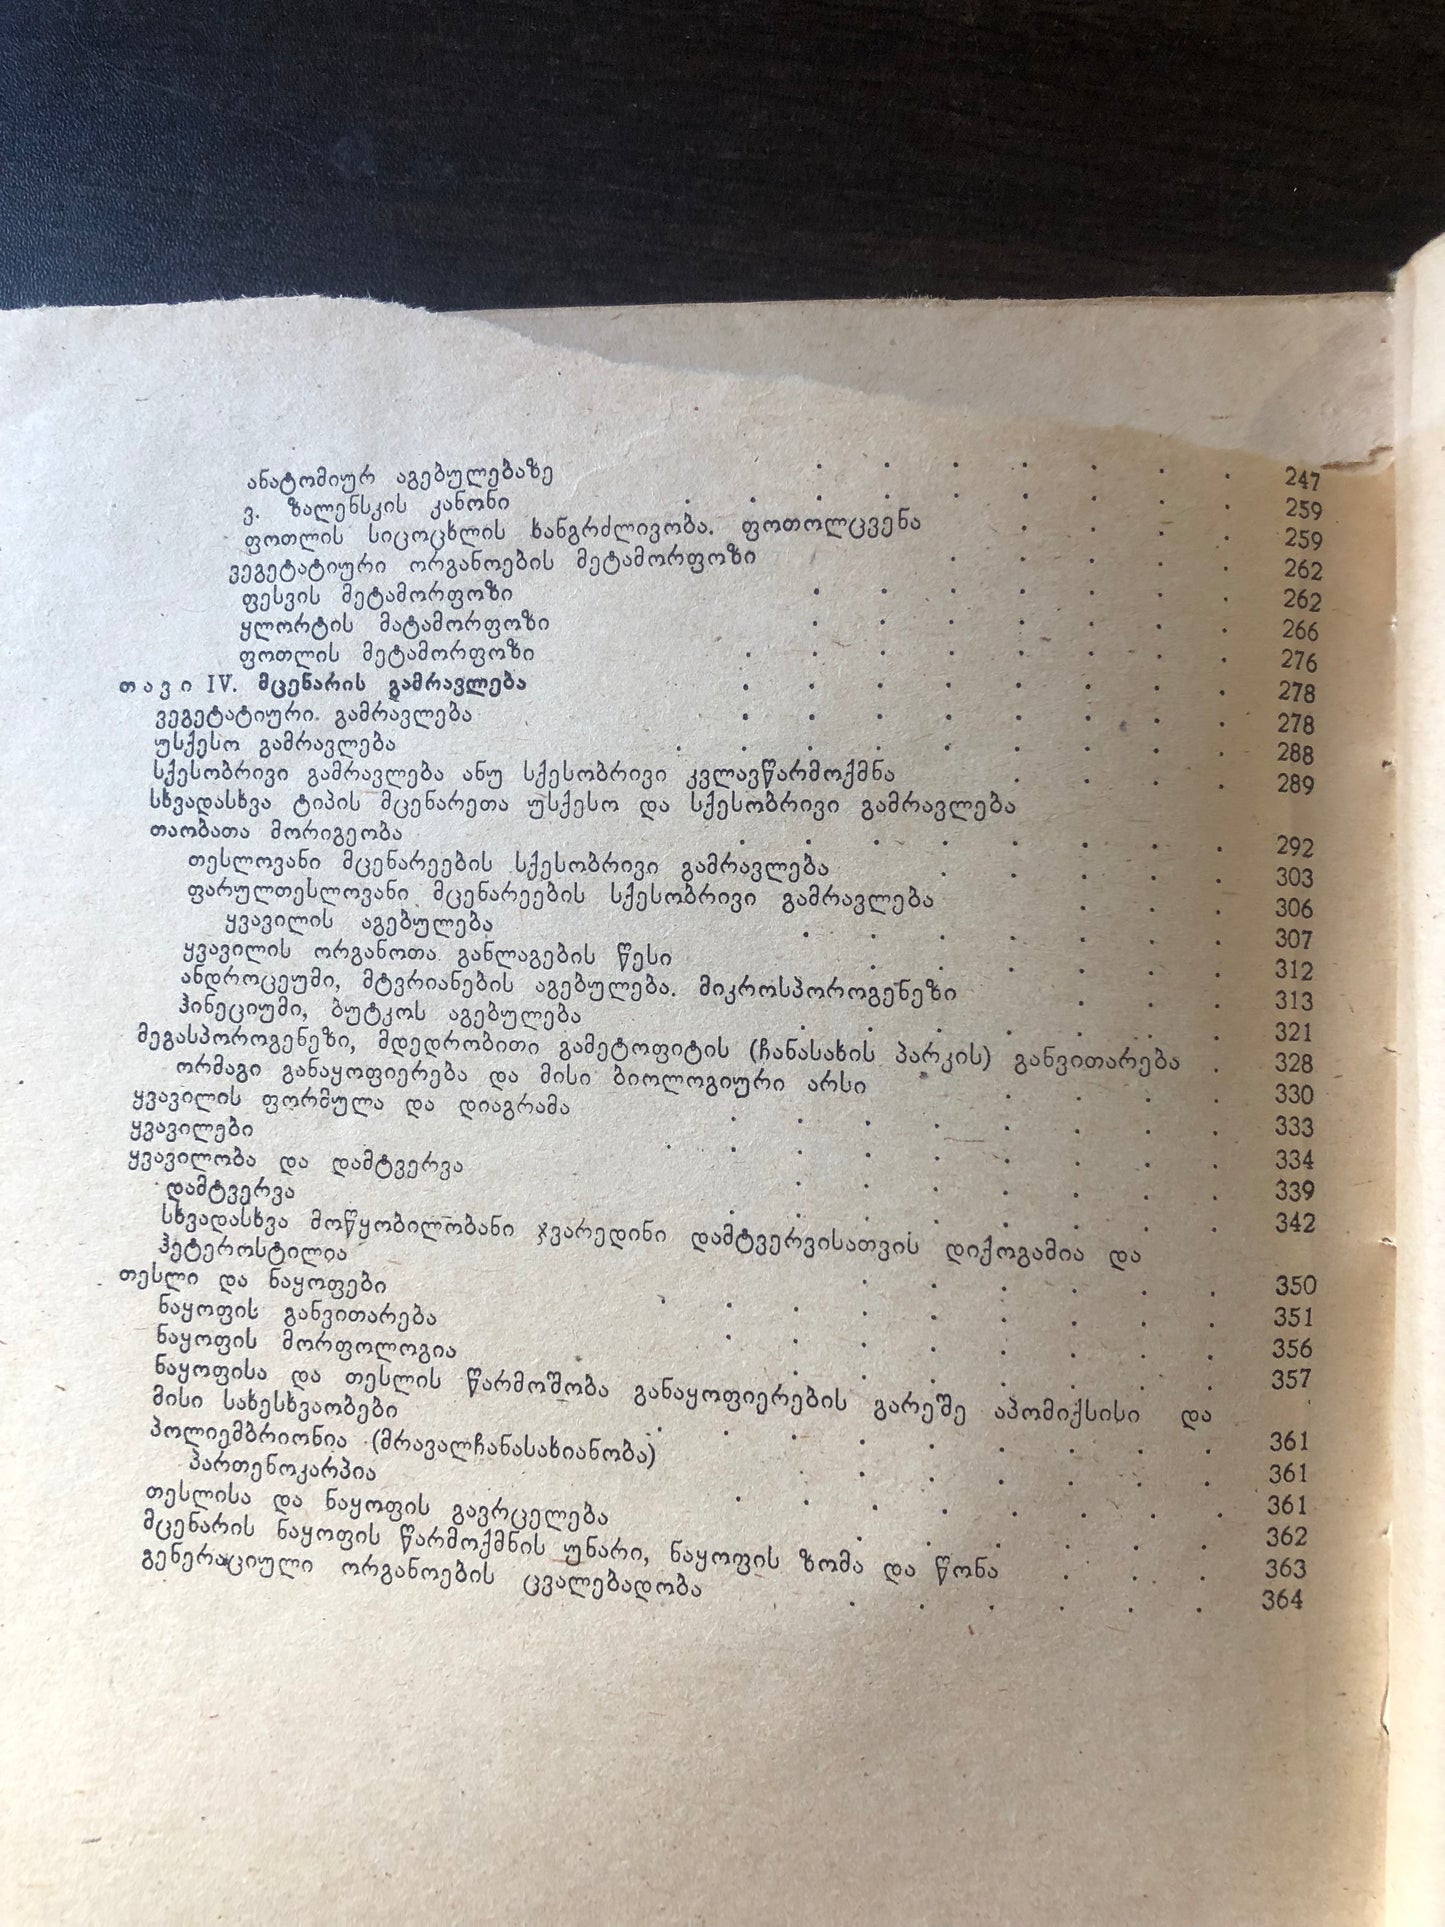 ანატომიურ აგებულებაზე . . . . . . . 247
ვ. ზალენსკის კანონი . . . . . . . . . 259
ფოთლის სიცოცხლის ხანგრძლივობა. ფოთოლცვენა . . . . 259
ვეგეტატიური ორგანოების მეტამორფოზი . . . . . 262
ფესვის მეტამორფოზი . . . . . . . 262
ყლორტის მატამორფოზი . . . . . . . 266
ფოთლის მეტამორფოზი . . . . . . . . 276
თავი IV. მცენარის გამრავლება . . . . . . . . 278
ვეგეტატიური გამრავლება . . . . . . . . 278
უსქესო გამრავლება . . . . . . . . . 288
სქესობრივი გამრავლება ანუ სქესობრივი კვლავწარმოქმნა . . . . 289
სხვადასხვა ტიპის მცენარეთა უსქესო და სქესობრივი გამრავლება
თაობათა მორიგეობა . . . . . . . . 292
თესლოვანი მცენარეების სქესობრივი გამრავლება . . . . . 303
ფარულთესლოვანი მცენარეების სქესობრივი გამრავლება . . . 306
ყვავილის აგებულება . . . . . . . 307
ყვავილის ორგანოთა განლაგების წესი . . . . . . 312
ანდროცეუმი, მტვრიანების აგებულება. მიკროსპოროგენეზი . . . 313
ჰინეციუმი, ბუტკოს აგებულება . . . . . . . 321
მეგასპოროგენეზი, მდედრობითი გამეტოფიტის (ჩანასახის პარკის) განვითარება . 328
ორმაგი განაყოფიერება და მისი ბიოლოგიური არსი . . . . 330
ყვავილის ფორმულა და დიაგრამა . . . . . . . . 333
ყვავილები . . . . . . . . . 334
ყვავილობა და დამტვერვა . . . . . . . 339
დამტვერვა . . . . . . . . 342
სხვადასხვა მოწყობილობანი ჯვარედინი დამტვერვისათვის დიქოგამია და
ჰეტეროსტილია . . . . . . 350
თესლი და ნაყოფები . . . . . . . . . 351
ნაყოფის განვითარება . . . . . . . . 356
ნაყოფის მორფოლოგია . . . . . . . 357
ნაყოფისა და თესლის წარმოშობა განაყოფიერების გარეშე აპომიქსისი და
მისი სახესხვაობები . . . . . . . . . 361
პოლიემბრიონია (მრავალჩანასახიანობა) . . . . . . 361
პართენოკარპია . . . . . . . . 361
თესლისა და ნაყოფის გავრცელება . . . . . . 362
მცენარის ნაყოფის წარმოქმნის უნარი, ნაყოფის ზომა და წონა . . . 363
გენერაციული ორგანოების ცვალებადობა . . . . . . 364